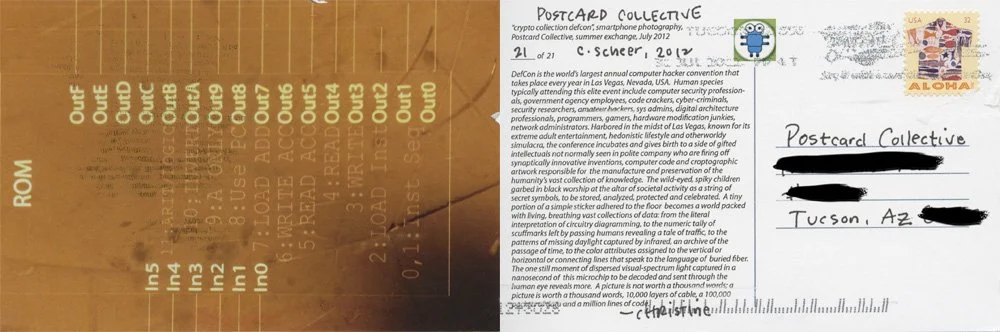 ROM
OutF
OutE
OutD
OutC
OutB
OutA
Out9
Out8
Out7
Out6
Out5
Out4
Out3
Out2
Out1
Out0
In5
In4
In3
In2
In1
In0
8:Use PC
7:LOAD ADD
6:WRITE AC
5:READ AC
4:READ
3:WRITE
2:LAA
0,1:Inst Seq
POSTCARD COLLECTIVE
"crypto collection defcon", smartphone photography,
Postcard Collective, summer exchange, July 2012
21 of 21 C. Scheer, 2012
DefCon is the world's largest annual computer hacker convention that
takes place every year in Las Vegas, Nevada, USA. Human species
typically attending this elite event include computer security profession-
als, government agency employees, code crackers, cyber-criminals,
security researchers, amateur hackers, sys admins, digital architecture
professionals, programmers, gamers, hardware modification junkies,
network administrators. Harbored in the midst of Las Vegas, known for its
extreme adult entertainment, hedonistic lifestyle and otherworldly
simulacra, the conference incubates and gives birth to a side of gifted
intellectuals not normally seen in polite company who are firing off
synaptically innovative inventions, computer code and cryptographic
artwork responsible for the manufacture and preservation of the
humanity's vast collection of knowledge. The wild-eyed, spiky children
garbed in black worship at the altar of societal activity as a string of
secret symbols, to be stored, analyzed, protected and celebrated. A tiny
portion of a simple sticker adhered to the floor becomes a world packed
with living, breathing vast collections of data: from the literal
interpretation of circuitry diagramming, to the numeric tally of
scuffmarks left by passing humans revealing a tale of traffic, to the
patterns of missing daylight captured by infrared, an archive of the
passage of time, to the color attributes assigned to the vertical or
horizontal or connecting lines that speak to the language of buried fiber.
The one still moment of dispersed visual-spectrum light captured in a
nanosecond of this microchip to be decoded and sent through the
human eye reveals more. A picture is not worth a thousand words; a
picture is worth a thousand words, 10,000 layers of cable, a 100,000
and a million lines of code.
-christine
USA 32
ALOHA!
Postcard Collective
Tucson, AZ